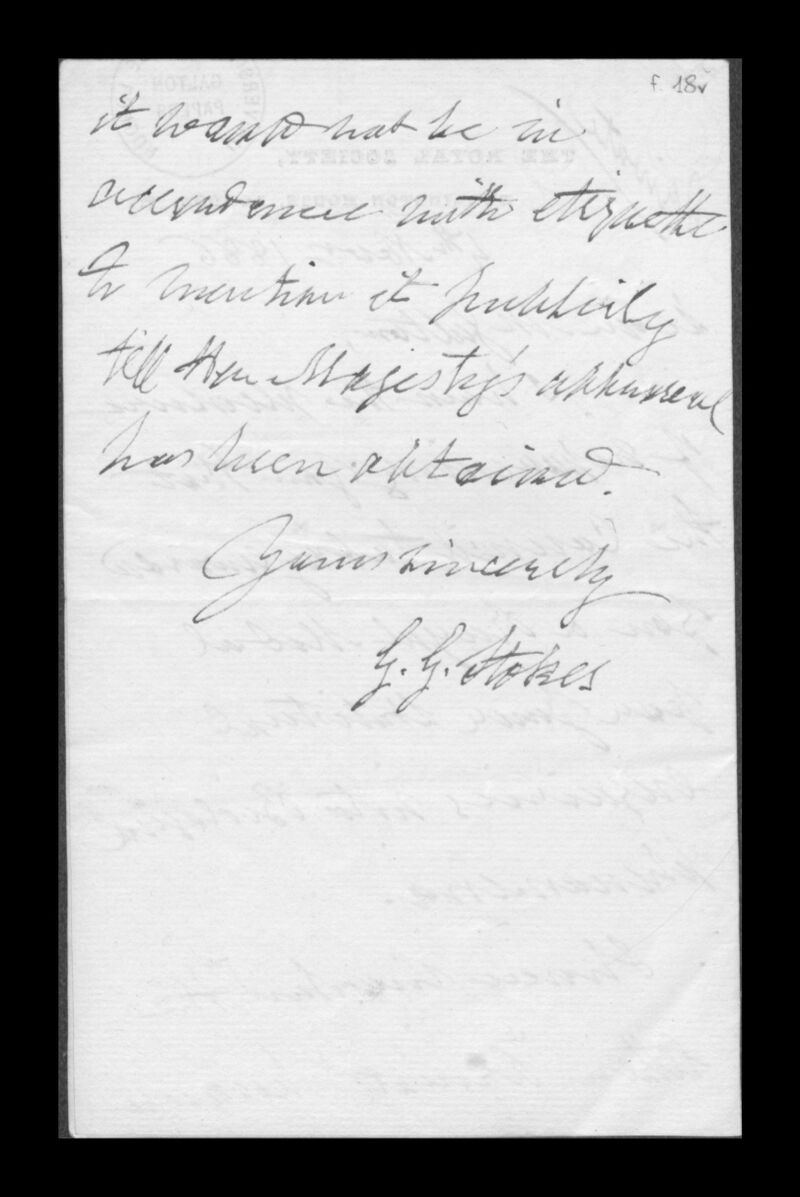 f. 18v
it would not be in
accordance with etiquette
to mention it publicly
till Her Majesty's approval
has been obtained.
Yours sincerely
G. G. Stokes